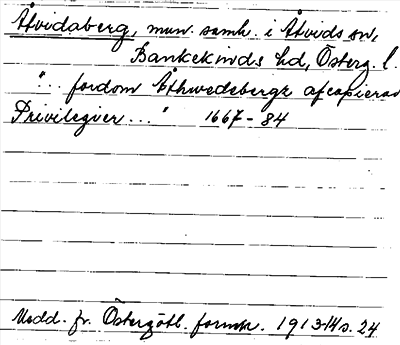 Åtvidaberg, mun. samh. i Åtvids sn,
Bankekinds hd, Österg. l.
"... fordom Åthwedsbergz afcopierad
Privilegier ..." 1667-84
Medd. fr. Östergötl. fornm. 1913-14 s. 24